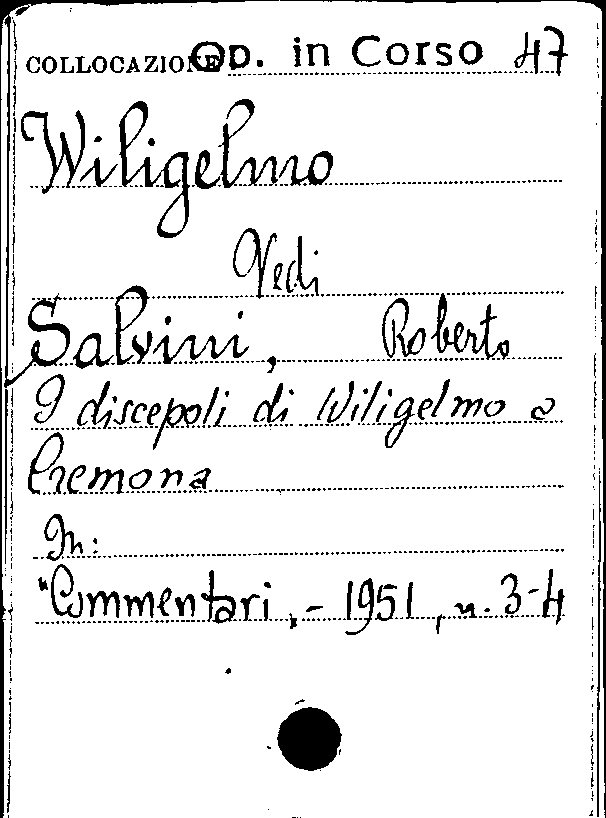 COLLOCAZIONE OD. in Corso 47
Wiligelmo
Vedi
Salvini, Roberto
I discepoli di Wiligelmo a
Cremona
In:
"Commentari,- 1951, n. 3-4